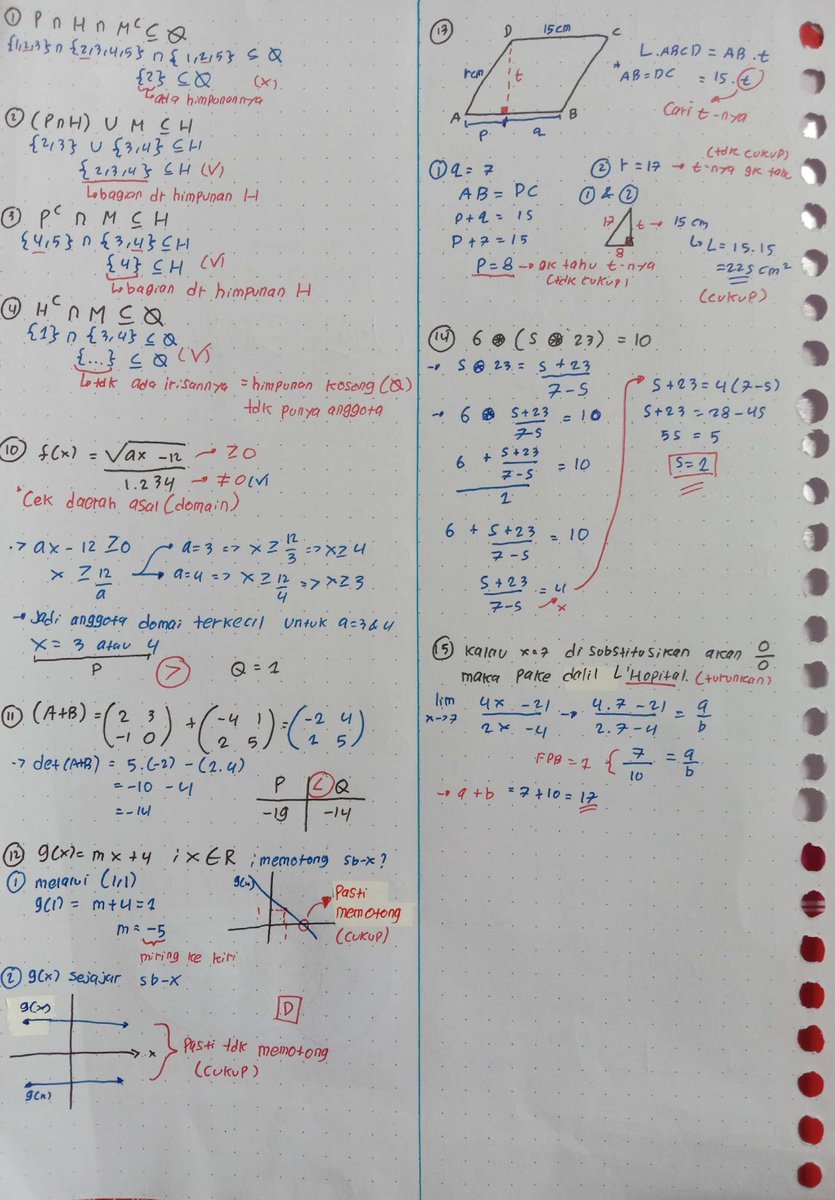 ① P ∩ H ∩ M^C ⊆ Ø
{1,2,3} ∩ {2,3,4,5} ∩ {1,2,5} ⊆ Ø
{2} ⊆ Ø (x)
↳ada himpunannya
② (P∩H) ∪ M ⊆ H
{2,3} ∪ {3,4} ⊆ H
{2,3,4} ⊆ H (V)
↳bagian dr himpunan H
③ P^C ∩ M ⊆ H
{4,5} ∩ {3,4} ⊆ H
{4} ⊆ H (V)
↳bagian dr himpunan H
④ H^C ∩ M ⊆ Ø
{1} ∩ {3,4} ⊆ Ø
{...} ⊆ Ø (V)
↳tdk ada irisannya = himpunan kosong (Ø)
tdk punya anggota
⑩ f(x) = √(ax-12) → ≥0
1.234 → ≠0 (V)
*Cek daerah asal (domain)
-> ax - 12 ≥ 0
x ≥ 12/a
a=3 => x ≥ 12/3 => x≥4
a=4 => x ≥ 12/4 => x≥3
→ Jadi anggota domai terkecil untuk a=3&4
x = 3 atau 4
P > Q = 1
⑪ (A+B) = (2 3 / -1 0) + (-4 1 / 2 5) = (-2 4 / 1 5)
-> det(A+B) = 5.(-2) - (1.4)
= -10 - 4
= -14
P < Q
-19 -14
⑫ g(x) = mx+4 ; x∈R ; memotong sb-x?
① melalui (1,1)
g(1) = m+4 = 1
m = -5
miring ke kiri
g(x)
Pasti
memotong
(CUKUP)
② g(x) sejajar sb-x
D
g(x)
x
g(x)
Pasti tdk memotong
(CUKUP)
⑬ D 15cm C
r cm
t
A B
p q
L.ABCD = AB.t
*AB=DC = 15.t
Cari t-nya
① q = 7
AB = DC
p+q = 15
p+7 = 15
p=8 → gk tahu t-nya
(tdk cukup)
(tdk cukup)
② r = 17 → t-nya gk tau
① & ②
17 t → 15 cm
8
↳ L = 15.15
= 225 cm²
(CUKUP)
⑭ 6 ⊛ (S ⊛ 23) = 10
→ S ⊛ 23 = (S+23)/(7-S)
→ 6 ⊛ (S+23)/(7-S) = 10
(6 + (S+23)/(7-S))/1 = 10
6 + (S+23)/(7-S) = 10
(S+23)/(7-S) = 4
x
S+23 = 4(7-S)
S+23 = 28-4S
5S = 5
S=1
⑮ Kalau x=7 di substitusikan akan 0/0
maka pake dalil L'Hopital. (turunkan)
lim x->7 (4x-21)/(2x-4) → (4.7-21)/(2.7-4) = a/b
FPB = 1 { 7/10 = a/b
→ a+b = 7+10 = 17